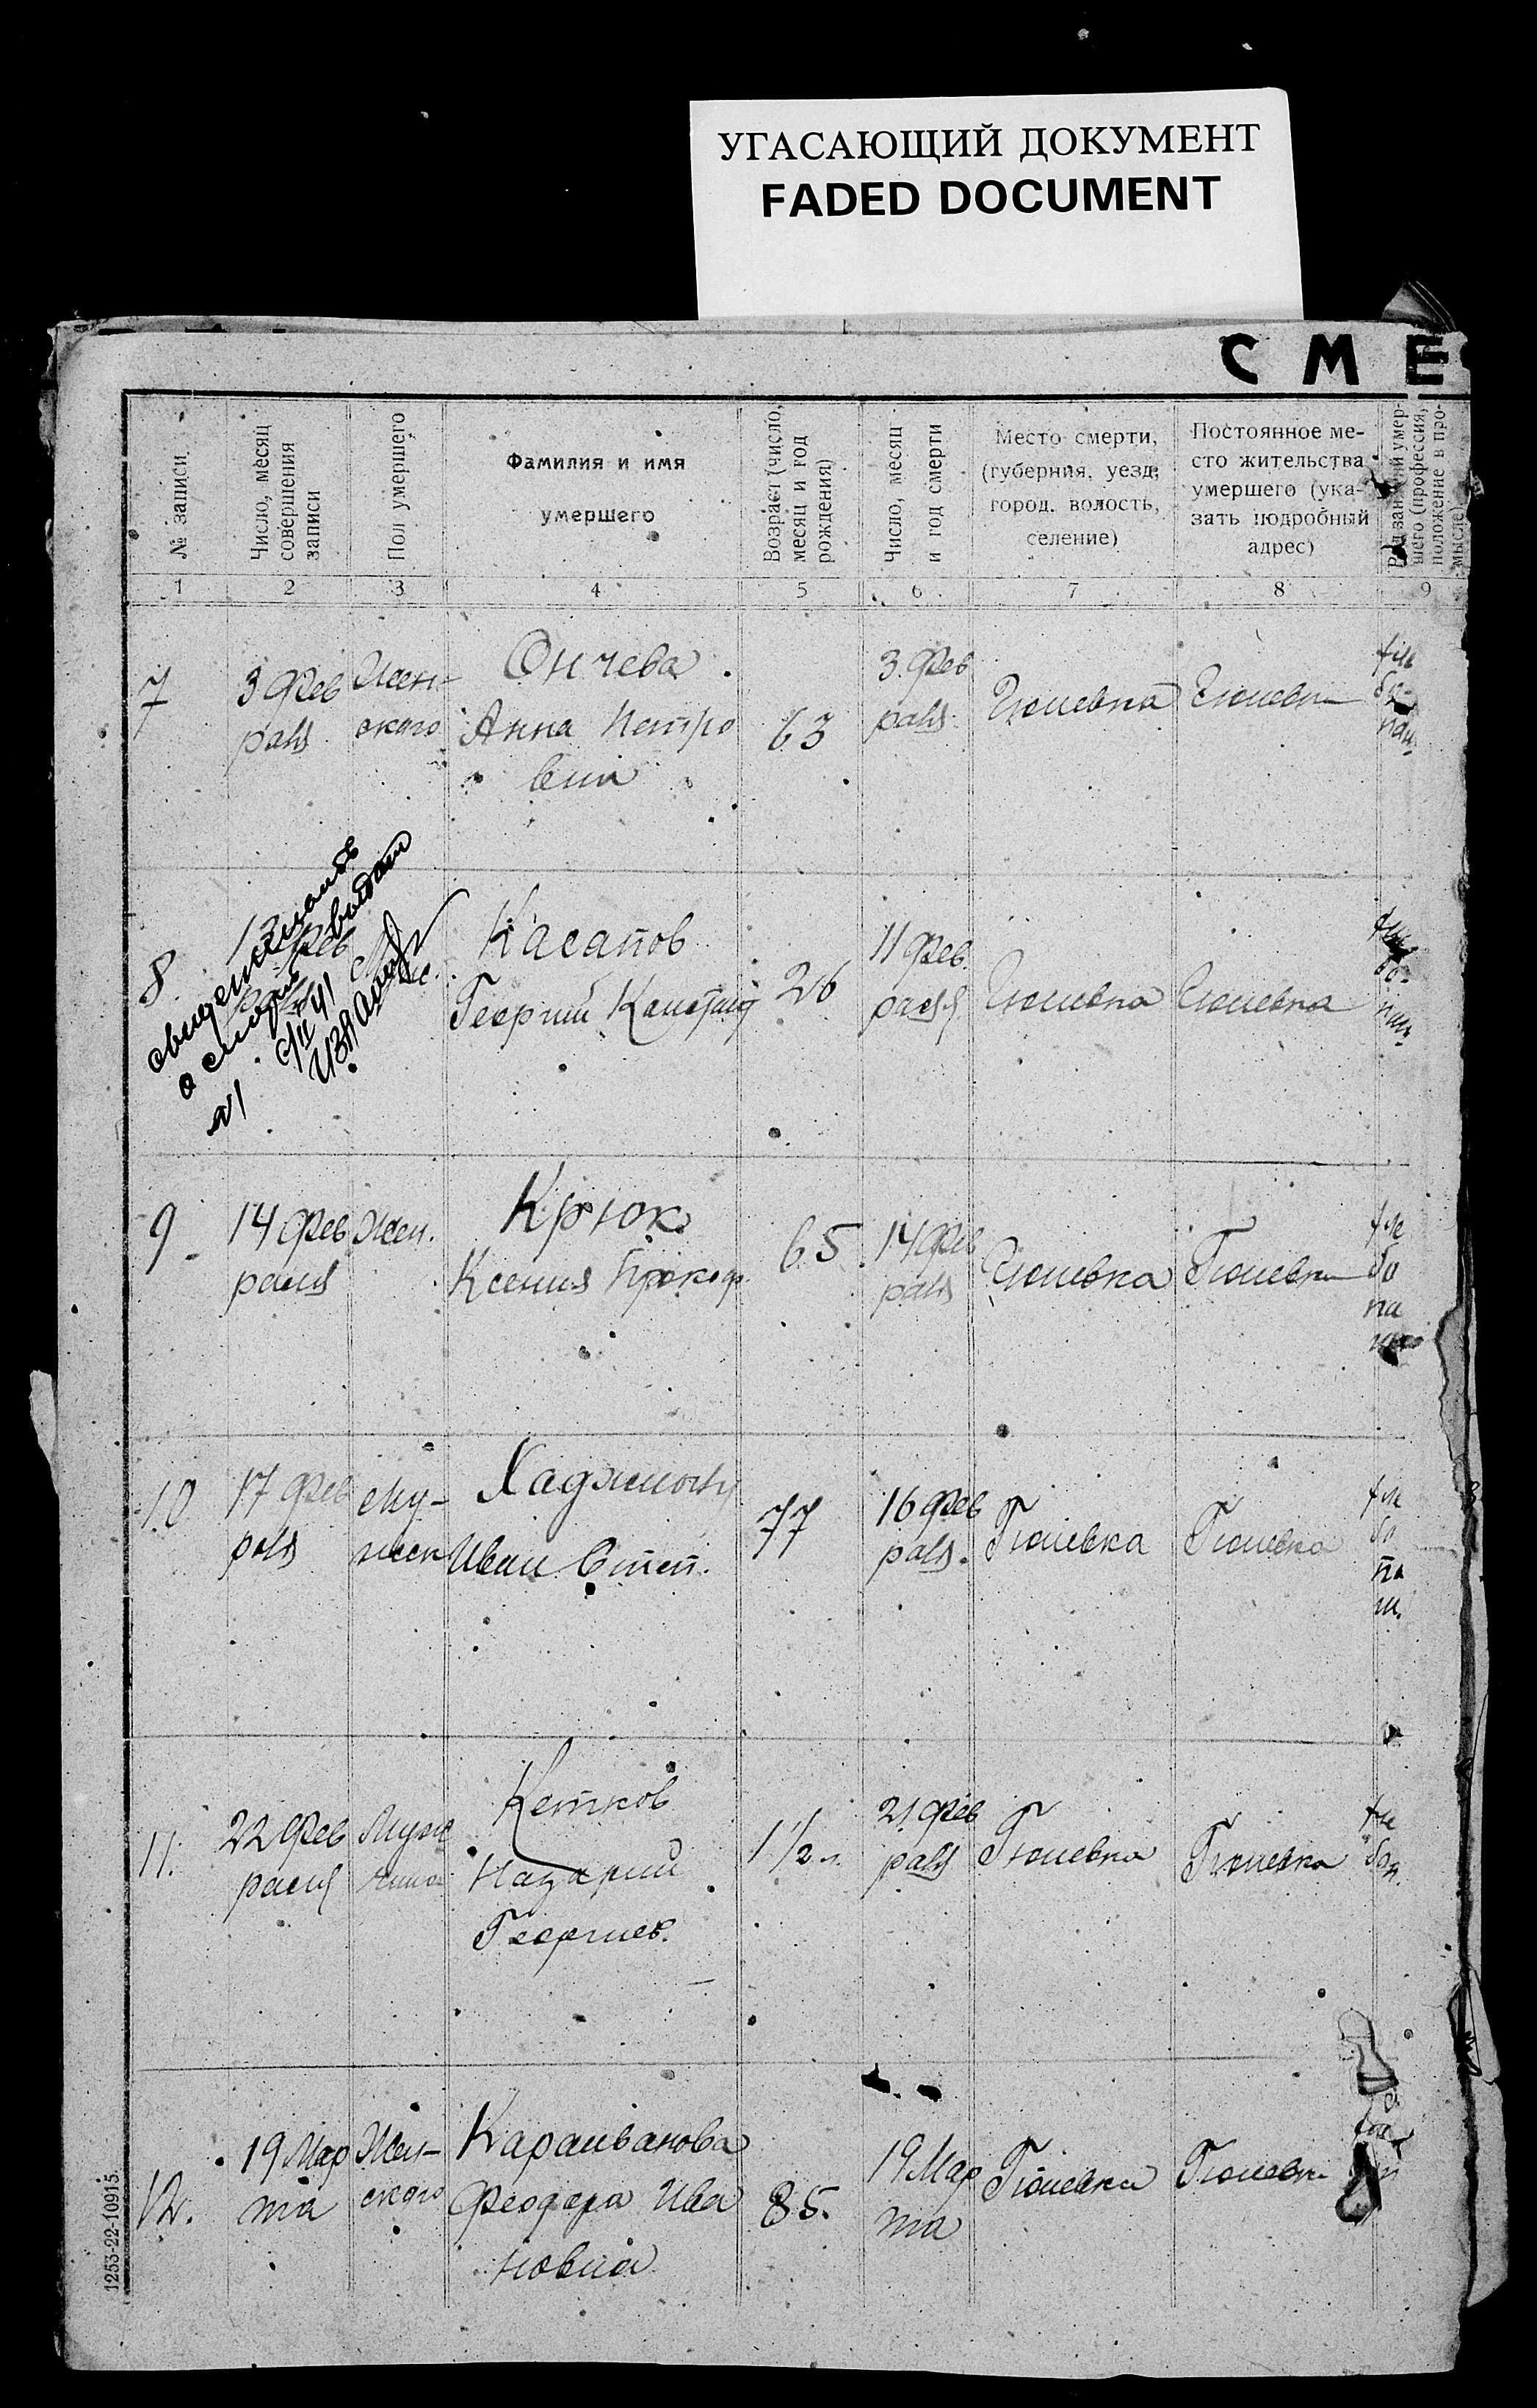 УГАСАЮЩИЙ ДОКУМЕНТ
FADED DOCUMENT
СМЕ
№ записи
Число, месяц
совершения
записи
Пол умершего
Фамилия и имя
умершего
Возраст (число,
месяц и год
рождения)
Число, месяц
и год смерти
Место смерти,
(губерния, уезд,
город, волость,
селение)
Постоянное ме-
сто жительства
умершего (ука-
зать подробный
адрес)
шего (профессия,
положение в про-
мысле)
1 2 3 4 5 6 7 8 9
7
3 Фев
раля
Жен-
ского
Ончева
Анна Петро
вна
63
3 Фев
раля
Гюневка
Гюневка
8.
13
Фев
свидетельство
о смерти выдано
Касапов
Георгий
26
11 Фев.
раля
Гюневка
Гюневка
9
14 Фев
раля
Жен.
Крюк
Ксения Прокоф.
65
14 Фев
раля
Гюневка
Гюневка
10
17 Фев
раля
му-
жск
Иван Степ.
77
16 Фев
раля.
Гюневка
Гюневка
11.
22 Фев
раля
Муж
чина
Кетков
Назарий
Георгиев.
1 1/2 л.
21 Фев
раля
Гюневка
Гюневка
12.
19 Мар
та
Жен-
ского
Караиванова
Феодора Ива
новна
85.
19 Мар
та
Гюневка
Гюневка
1253-22-10915.